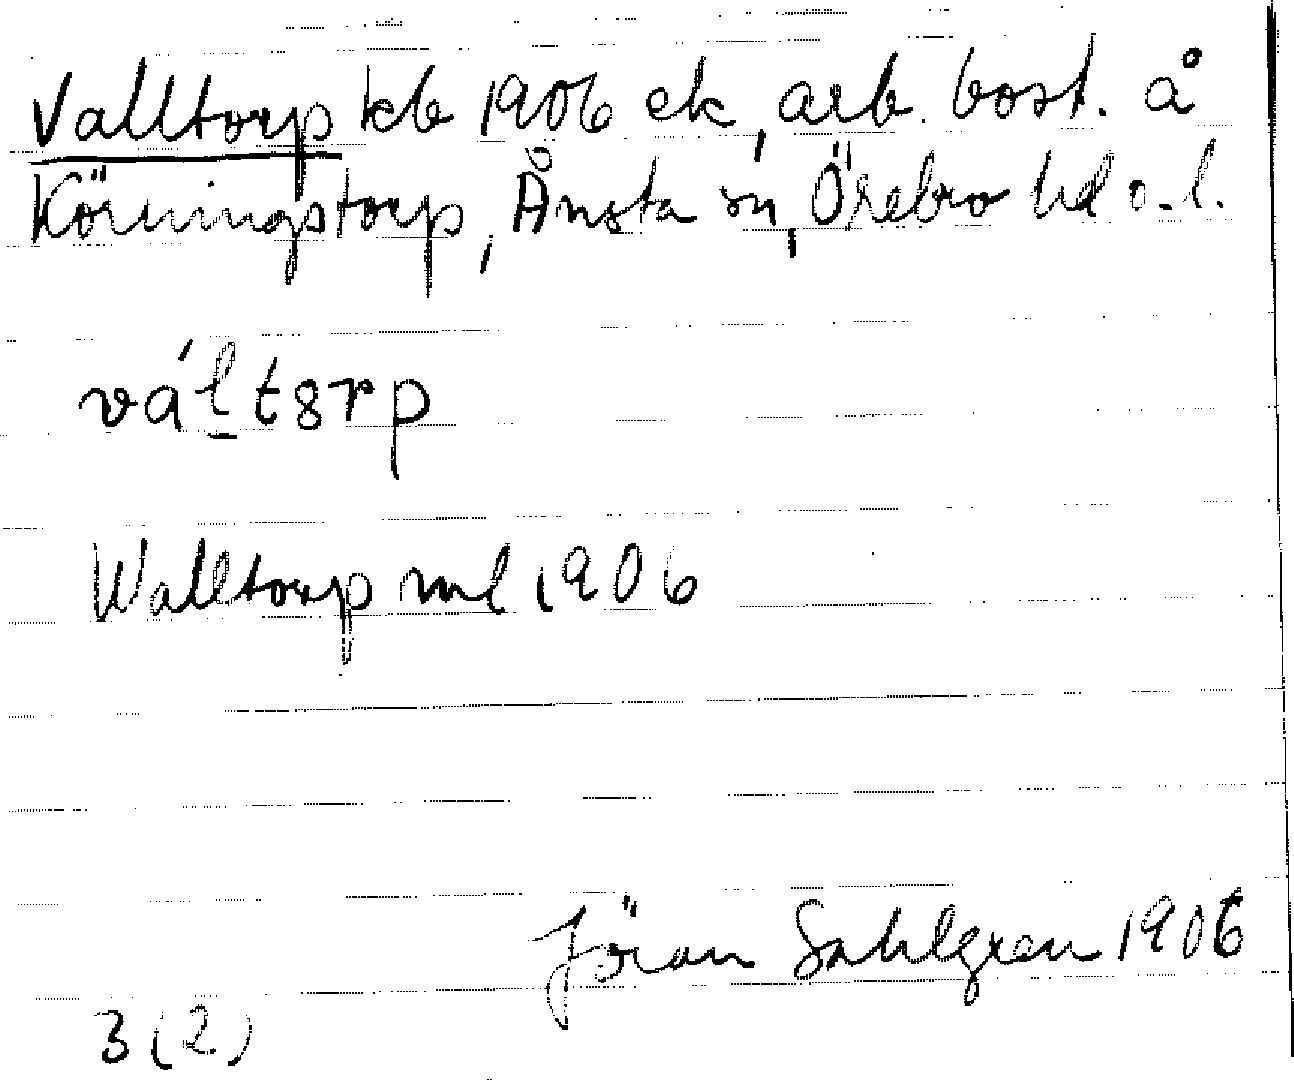 Valltorp kb 1906 ek, arb. bost. å
Körningstorp, Ånsta sn, Örebro hd o. l.
vál̠t8rp
Walltorp ml 1906
Jöran Sahlgren 1906
3 (2)